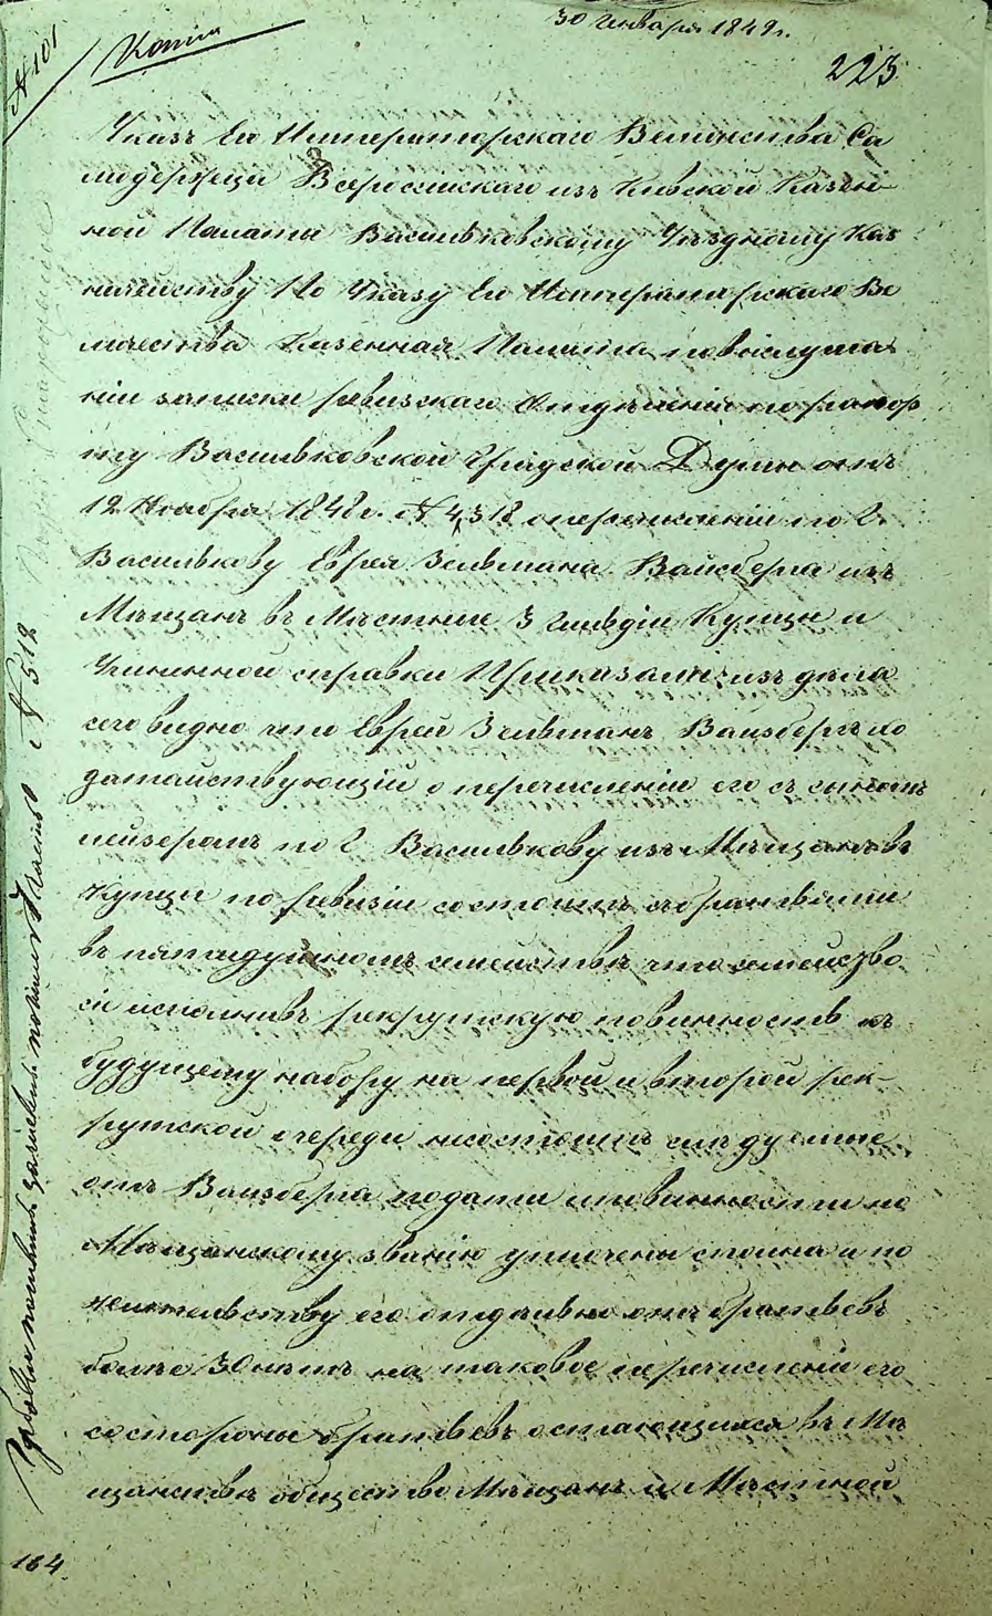 30 Января 1849 г.
№ 101
Копия
223
Указъ Его Императорскаго Величества Са
модержца Всеросiйскаго изъ Киевской Казен-
ной Палаты Васильковскому Уездному Каз
начейству По Указу Его Императорскаго Ве
личества Казенная Палата по выслуша
нiи записки ревизскаго Отделенiя по рапор
ту Васильковской Градской Думы отъ
12 Ноября 1848 г. № 4318 о перечисленiи по г.
Василькову Еврея Зельмана Вайсберга изъ
Мѣщанъ въ Мѣстные 3 Гильдiи Купцы и
Учиненной справки Приказали: изъ дѣла
сего видно что Еврей Зельманъ Вайзбергъ хо
датайствующiй о перечисленiи его съ сыномъ
лейзеромъ по г. Василькову изъ Мѣщанъ въ
Купцы по ревизiи состоитъ съ братьями
въ пятидушномъ семействѣ что семейство
сiе исполнивъ рекрутскую повинность къ
будущему набору на первой и второй рек-
рутской очереди несостоитъ следуемые
отъ Вайзберга подати и повинности по
Мѣщанскому званiю уплочены сполна и по
жительству его отдѣльно отъ братьевъ
болѣе 30 лѣтъ на таковое перечисленiе его
со стороны братьевъ остающихся въ Мѣ
щанствѣ общество Мѣщанъ и Мѣстной
№ 518
184